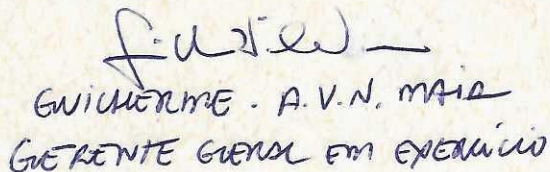 GUILHERME. A.V.N. MAIA
GERENTE GERAL EM EXERCÍCIO